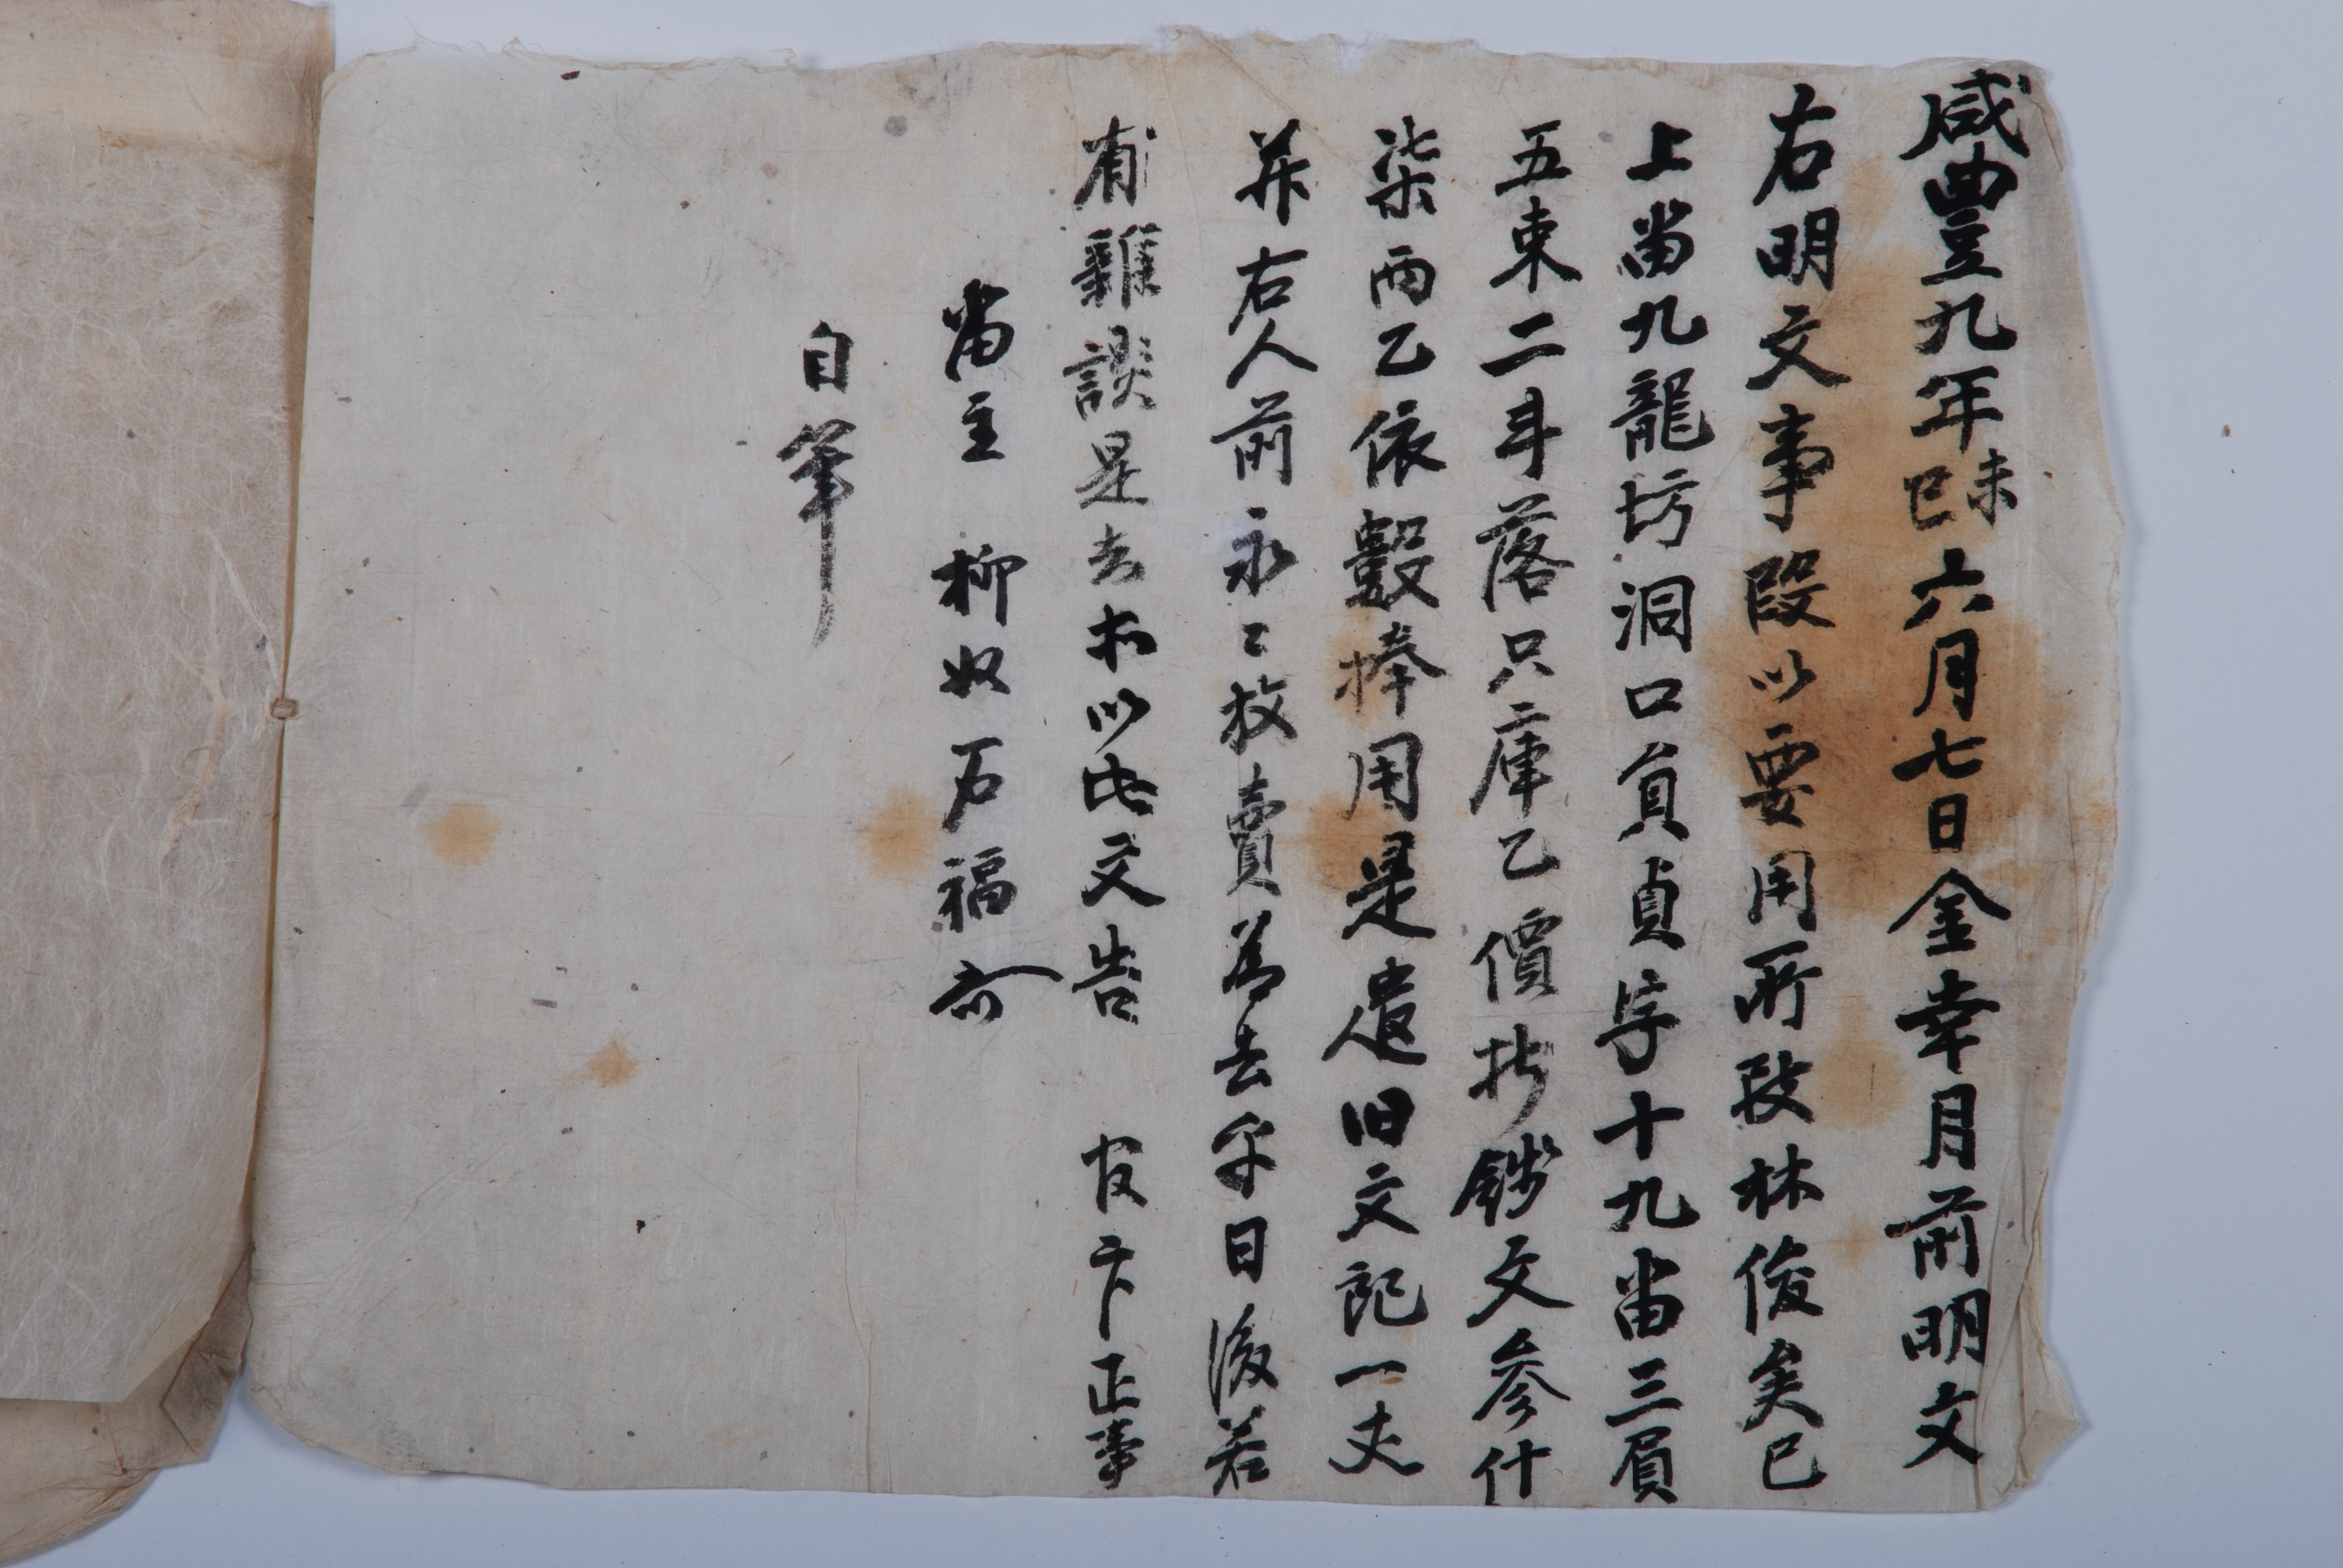 咸豐九年己未六月七日金幸月前明文
右明文事段以要用所致林俊矣己
上畓九龍坊洞口員貞字十九畓三負
五束二斗落只庫乙價折錢文參什
柒兩乙依數捧用是遣旧文記一丈
並右人前永々放賣爲去乎日後若
有雜談是去等以此文告官卞正事
畓主 柳奴石福
自筆